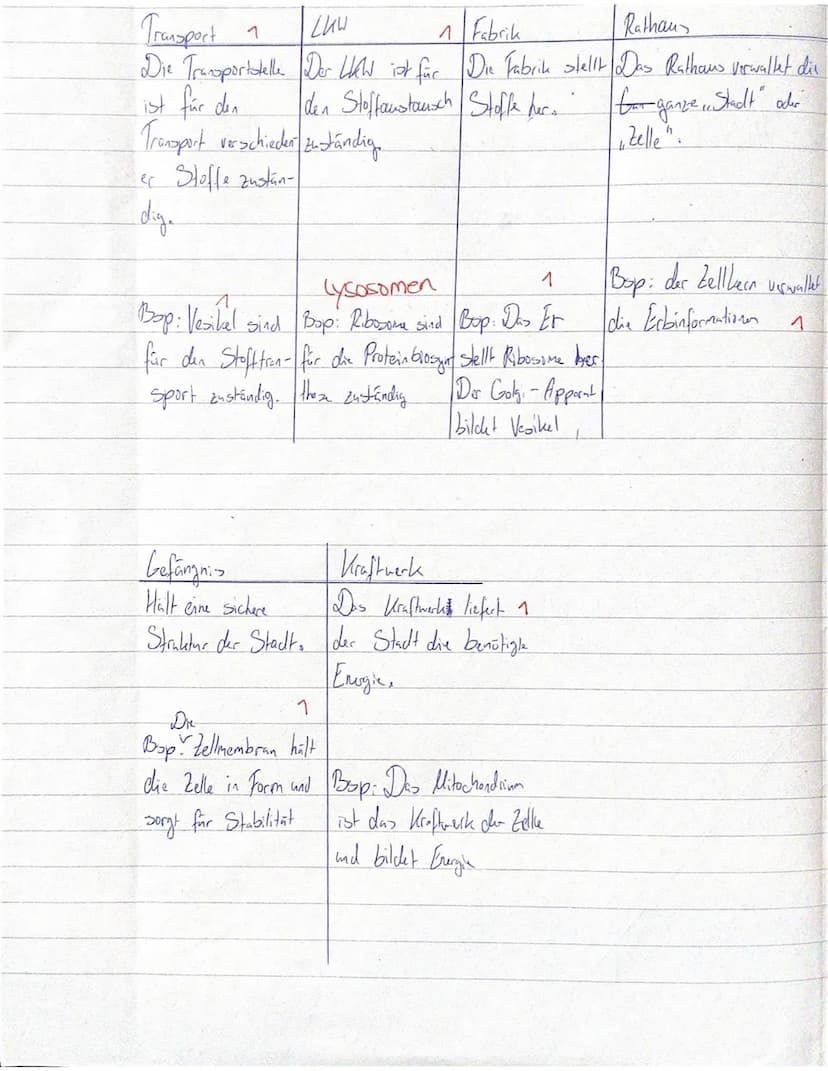 Transport 1
Die Transportstelle
ist für den
Transport verschieden
er Stoffe zustän-
dig.
1
Bsp: Vesikel sind
für den Stofftran-
sport zuständig.
LKW 1
Der LKW ist für
den Stoffaustausch
zuständig.
Lysosomen
Bsp: Ribosome sind
für die Proteinbiosynt
these zuständig
Fabrik
Die Fabrik stellt
Stoffe her.
1
Bsp: Das Er
stellt Ribosome her.
Der Golgi-Apparat
bildet Vesikel
Rathaus
Das Rathaus verwaltet die
ganze „Stadt" oder
„Zelle".
Bsp: der Zellkern verwaltet
die Erbinformationen 1
Gefängnis
Hält eine sichere
Struktur der Stadt.
1
Die
Bsp: Zellmembran hält
die Zelle in Form und
sorgt für Stabilität
Kraftwerk
Das Kraftwerk liefert 1
der Stadt die benötigte
Energie.
Bsp: Das Mitochondrium
ist das Kraftwerk der Zelle
und bildet Energie